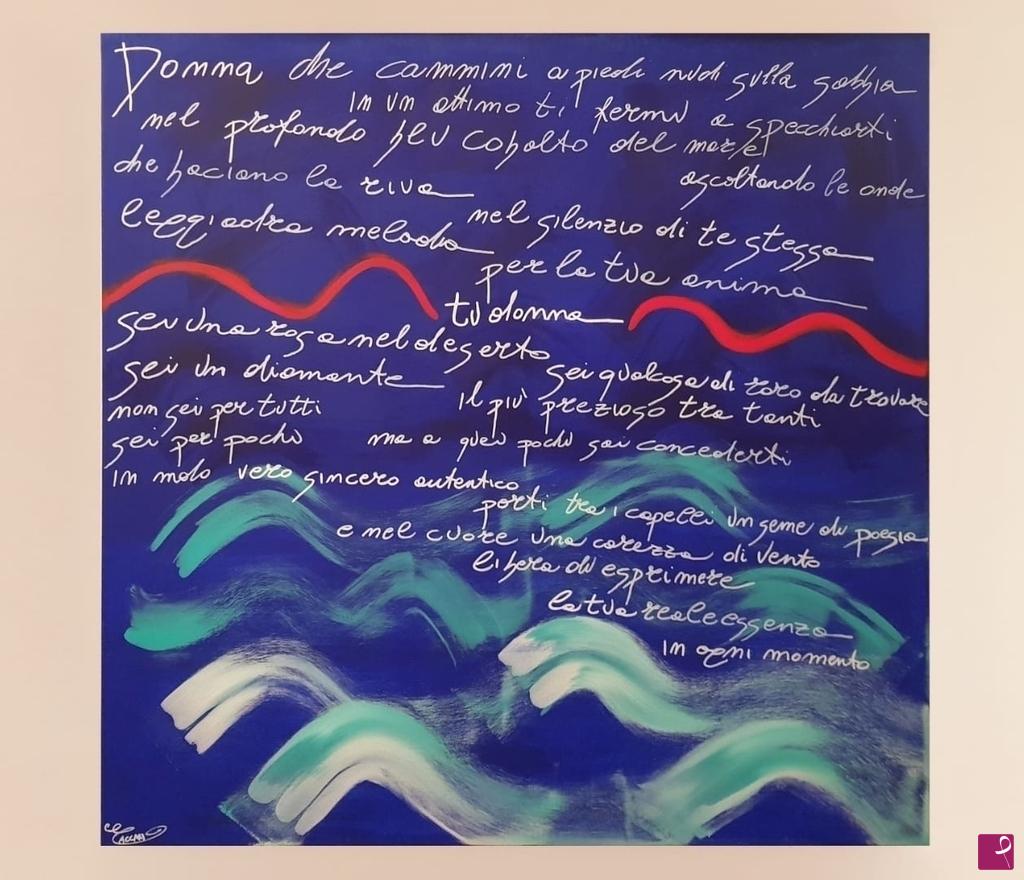 Donna che cammini a piedi nudi sulla sabbia
in un attimo ti fermi a specchiarti
nel profondo blu cobalto del mare
ascoltando le onde
che baciano la riva
nel silenzio di te stessa
leggiadra melodia
per la tua anima
tu donna
sei una rosa nel deserto
sei qualcosa di raro da trovare
sei un diamante
il più prezioso tra tanti
non sei per tutti
sei per pochi ma a quei pochi sai concederti
in modo vero sincero autentico
porti tra i capelli un seme di poesia
e nel cuore una carezza di vento
libera di esprimere
la tua reale essenza
in ogni momento